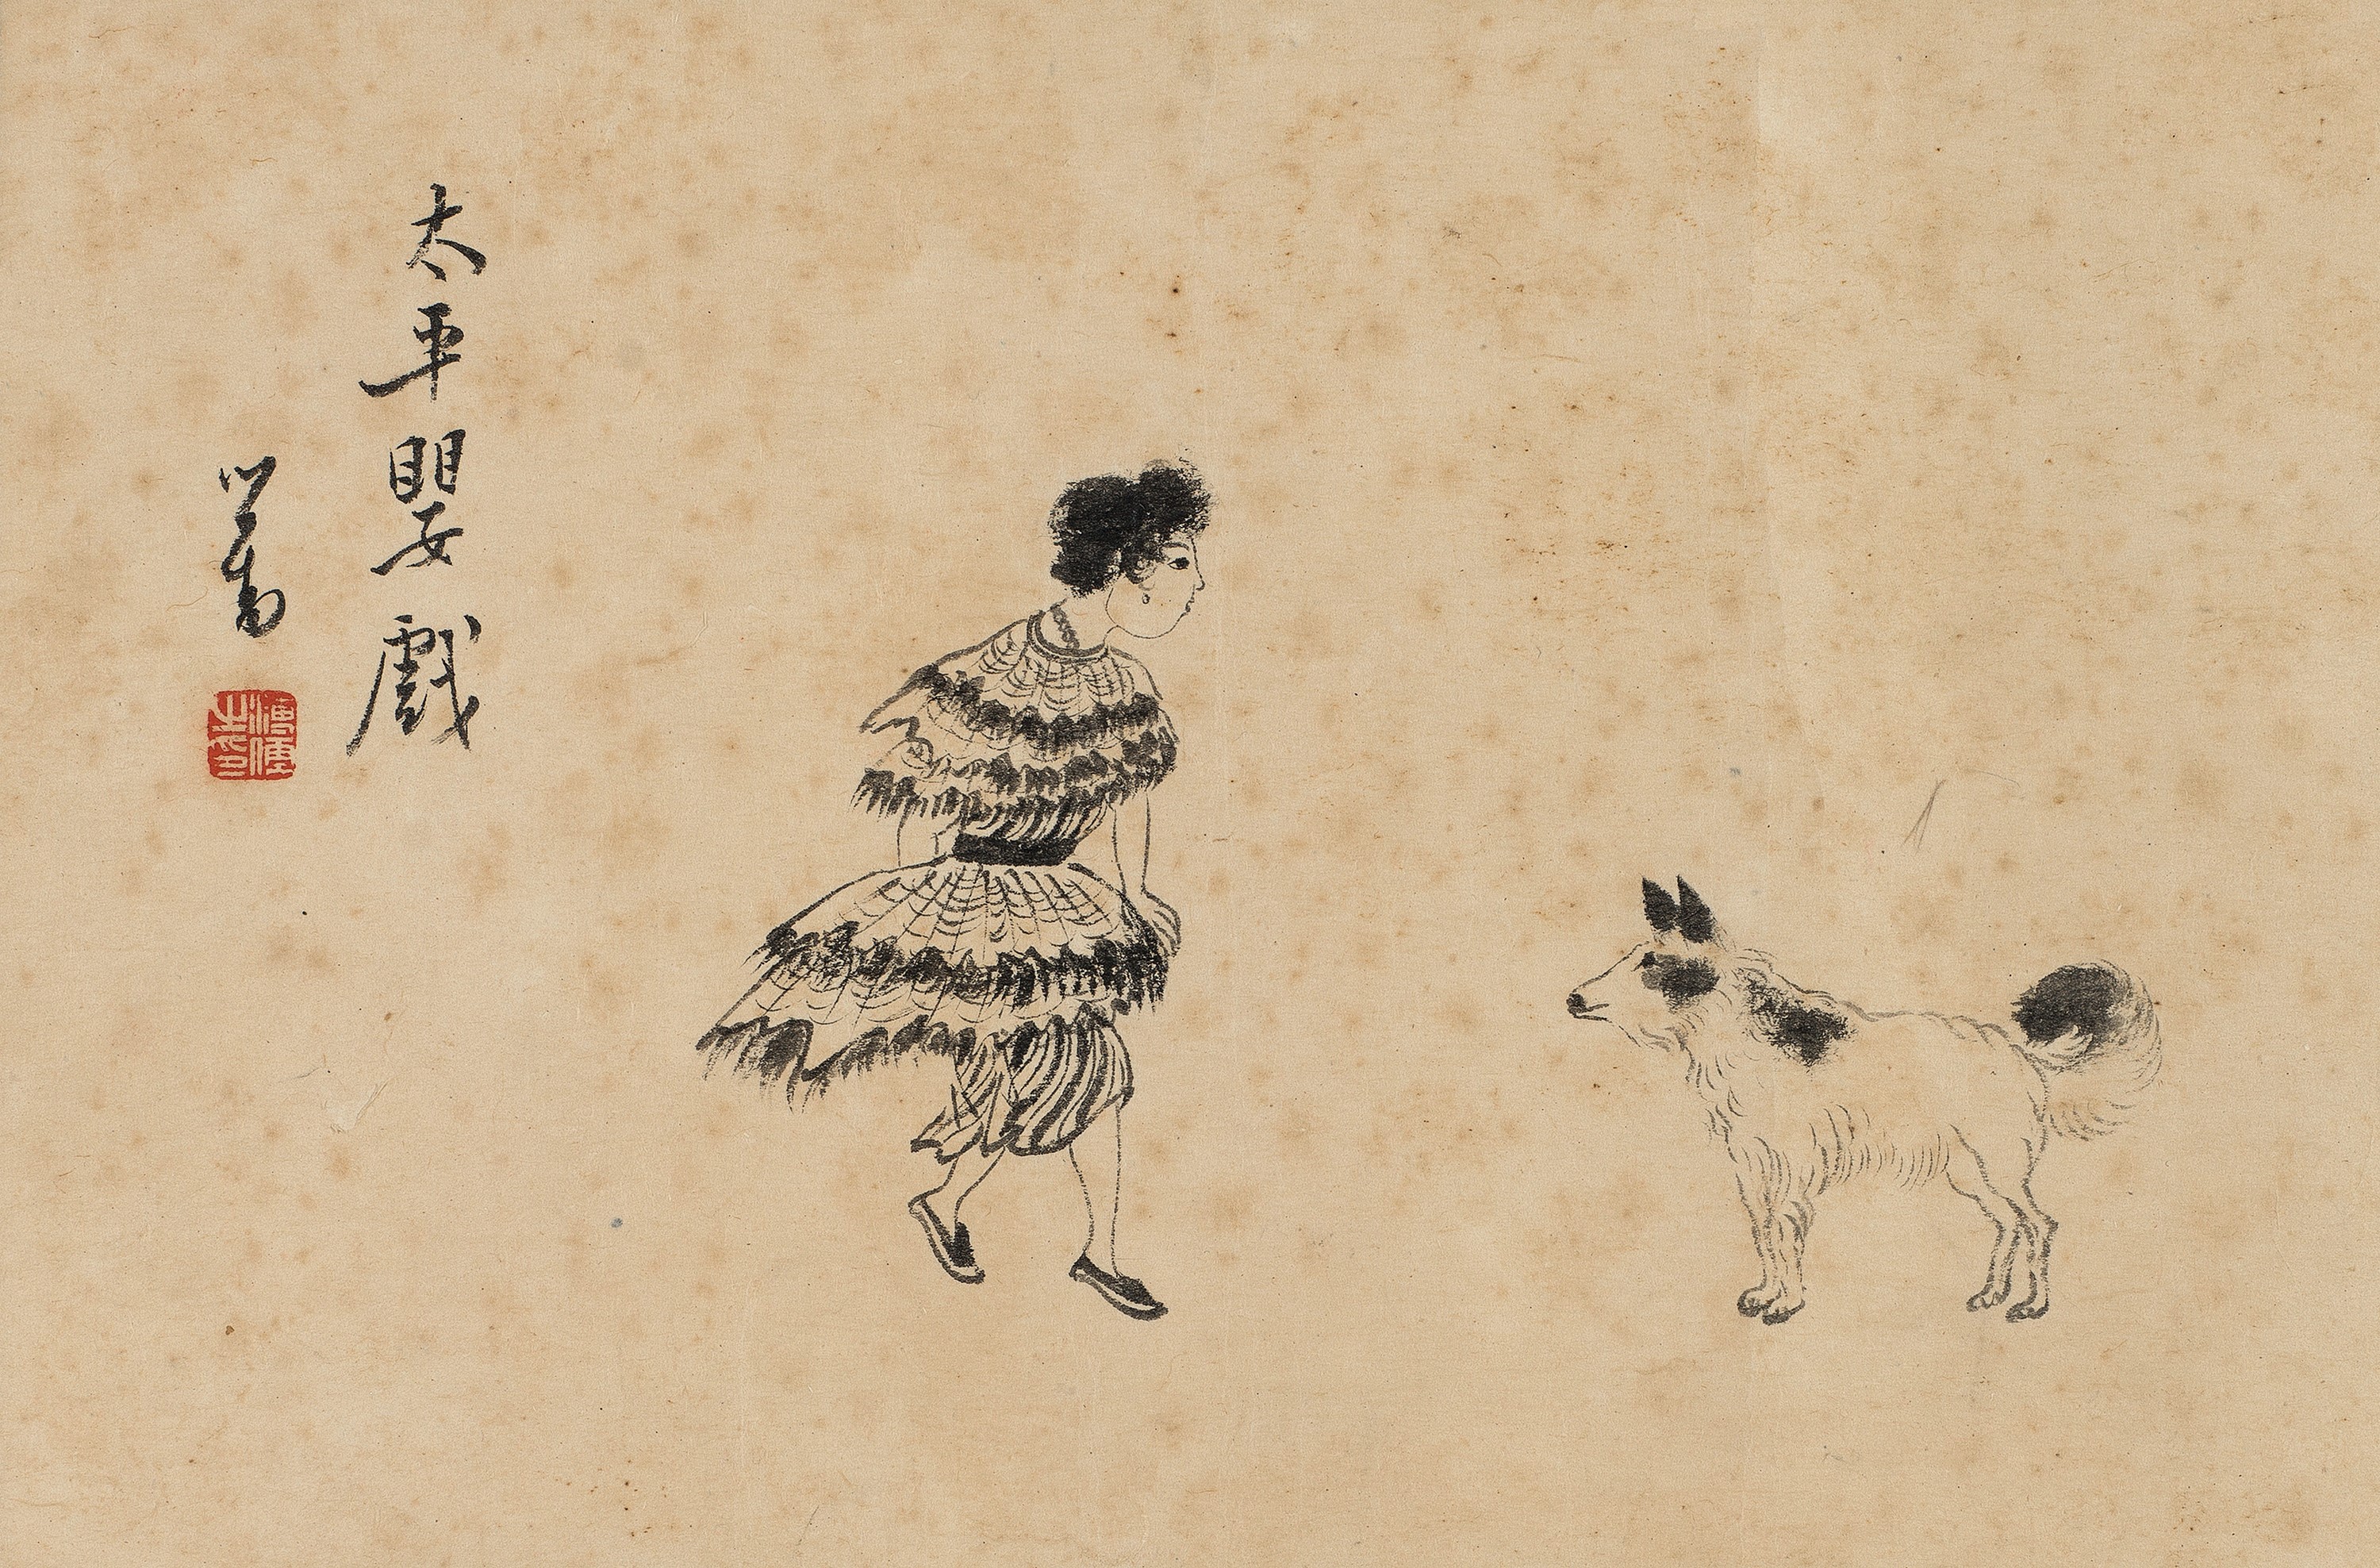 太平嬰戲
心畬
溥儒之印